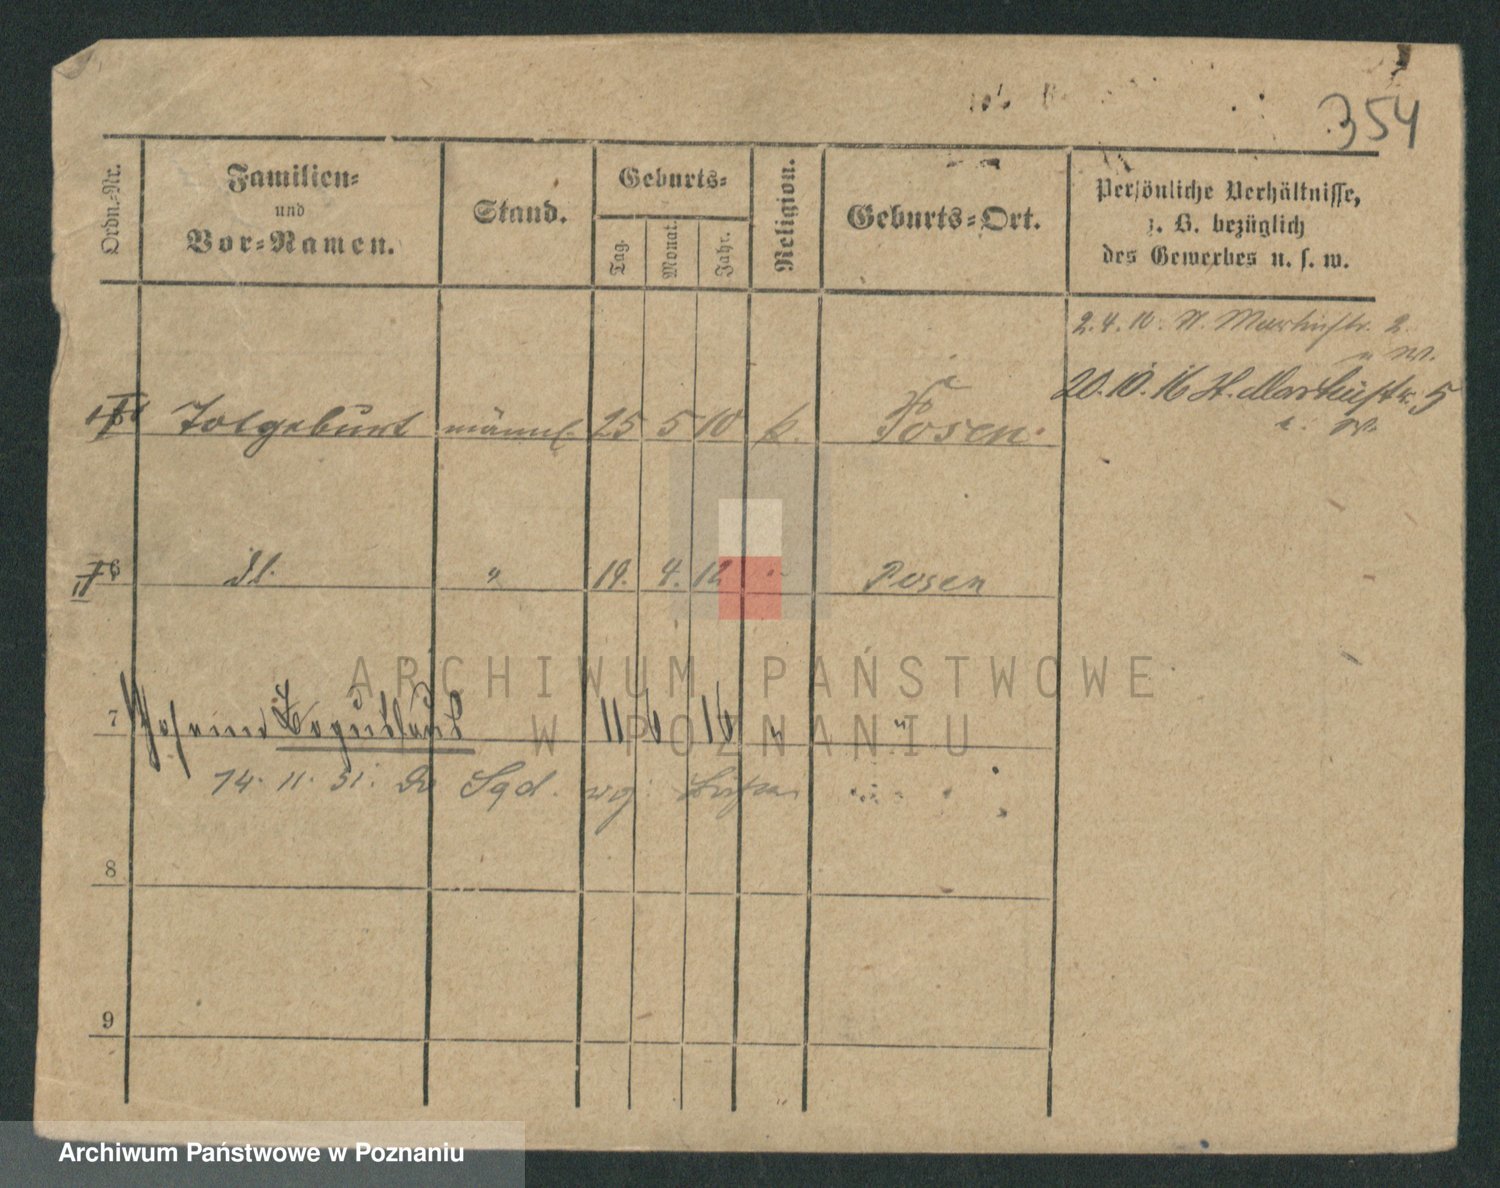 354
Ordn.-Nr.
Familien-
und
Vor-Namen.
Stand.
Geburts-
Tag.
Monat.
Jahr.
Religion.
Geburts-Ort.
Persönliche Verhältnisse,
z. B. bezüglich
des Gewerbes u. s. w.
2. 4. 10. St. Martinstr. 2
20. 10. 16 St. Martinstr. 5
Totgeburt männl. 25 5 10 k. Posen
6 " 19. 4. 12 Posen
7 Boguslaus 11 6 16 " "
14. 11. 31.
8
9
ARCHIWUM PAŃSTWOWE
W POZNANIU
Archiwum Państwowe w Poznaniu